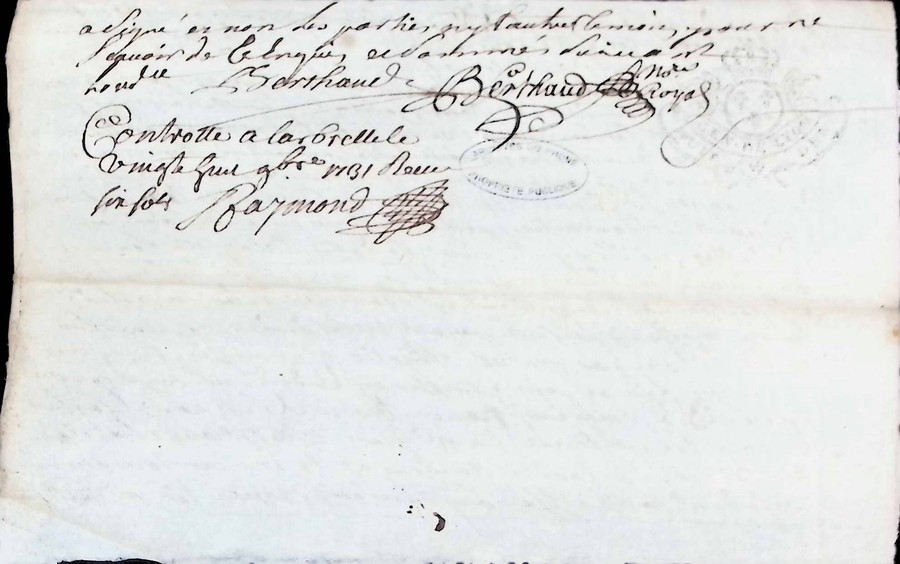 a signé et non les parties ny l'autre temoin, pour ne
sçavoir de ce enquis et sommés suivant
lordce Berthaud Berthaud Nore
Royal
Controllé a larbrelle le
vingte huit 9bre 1731 Receu
six sols Raymond